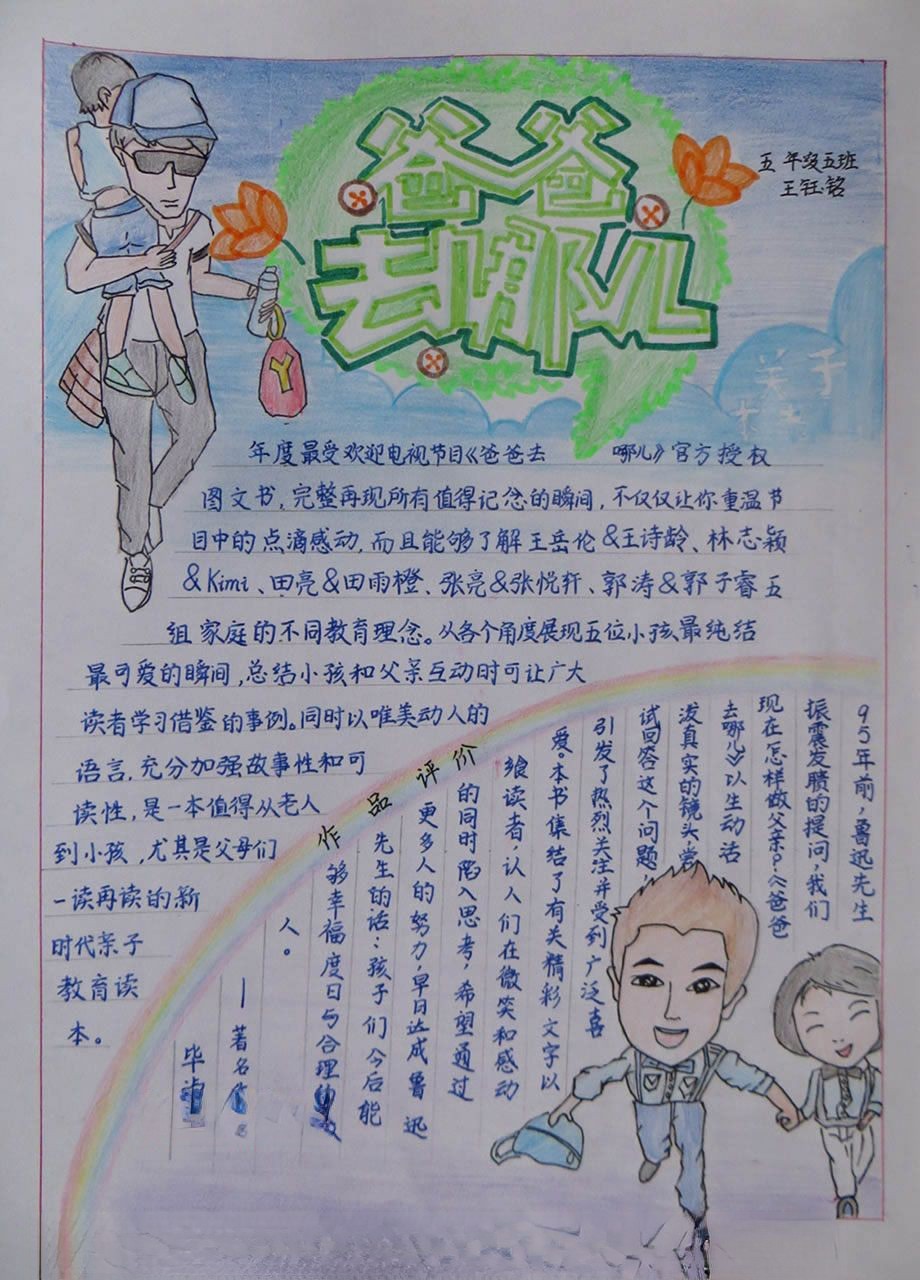 爸爸
去哪儿
五年级五班
王钰铭
关于
年度最受欢迎电视节目《爸爸去 哪儿》官方授权
图文书,完整再现所有值得记念的瞬间,不仅仅让你重温节
目中的点滴感动,而且能够了解王岳伦&王诗龄、林志颖
&Kimi、田亮&田雨橙、张亮&张悦轩、郭涛&郭子睿五
组家庭的不同教育理念。从各个角度展现五位小孩最纯结
最可爱的瞬间,总结小孩和父亲互动时可让广大
读者学习借鉴的事例。同时以唯美动人的
语言,充分加强故事性和可
读性,是一本值得从老人
到小孩,尤其是父母们
一读再读的新
时代亲子
教育读
本。
作品评价
95年前,鲁迅先生
振震发膭的提问,我们
现在怎样做父亲?《爸爸
去哪儿》以生动活
泼真实的镜头尝
试回答这个问题,
引发了热烈关注并受到广泛喜
爱。本书集结了有关精彩文字以
飨读者,认人们在微笑和感动
的同时陷入思考,希望通过
更多人的努力,早日达成鲁迅
先生的话:孩子们今后能
够幸福度日与合理
人。
—著名
毕
Y